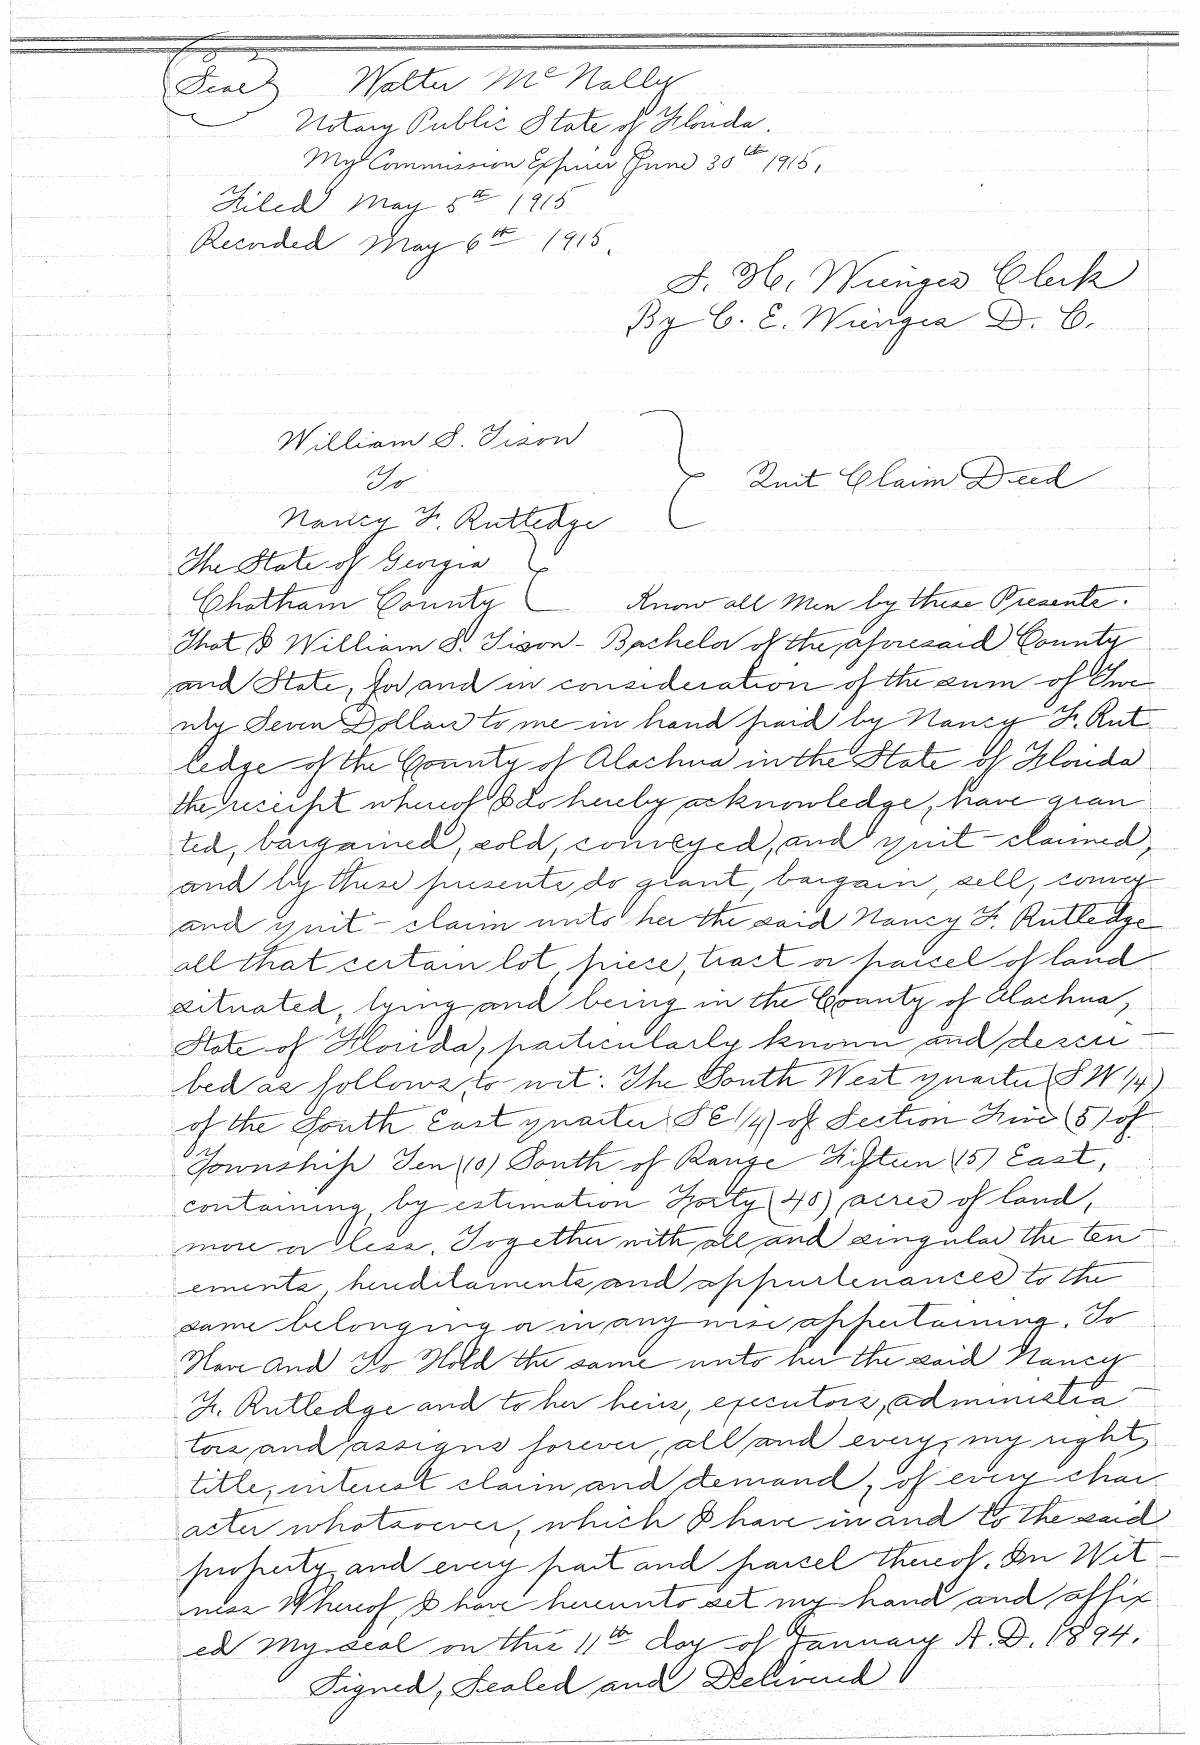 (Seal) Walter McNally
Notary Public State of Florida.
My Commission Expires June 30th 1915.
Filed May 5th 1915
Recorded May 6th 1915.
S. H. Wienges Clerk
By C. E. Wienges D. C.
William S. Tison
To
Nancy F. Rutledge
Quit Claim Deed
The State of Georgia
Chatham County Know all Men by these Presents.
That I William S. Tison - Bachelor of the aforesaid County
and State, for and in consideration of the sum of Twe
nty Seven Dollars to me in hand paid by Nancy F. Rut
ledge of the County of Alachua in the State of Florida
the receipt whereof I do hereby acknowledge, have gran
ted, bargained, sold, conveyed, and quit-claimed,
and by these presents, do grant, bargain, sell, convey
and quit-claim unto her the said Nancy F. Rutledge
all that certain lot, piece, tract or parcel of land
situated, lying and being in the County of Alachua,
State of Florida, particularly known and descri-
bed as follows, to-wit: The South West quarter (SW 1/4)
of the South East quarter (SE 1/4) of Section Five (5) of
Township Ten (10) South of Range Fifteen (15) East,
containing, by estimation Forty (40) acres of land,
more or less. Together with all and singular the ten-
ements, hereditaments and appurtenances to the
same belonging or in any wise appertaining. To
Have and To Hold the same unto her the said Nancy
F. Rutledge and to her heirs, executors, administra-
tors and assigns forever, all and every, my right,
title, interest claim and demand, of every char-
acter whatsoever, which I have in and to the said
property, and every part and parcel thereof. In Wit-
ness Whereof, I have hereunto set my hand and affix
ed my seal on this 11th day of January A.D. 1894.
Signed, Sealed and Delivered